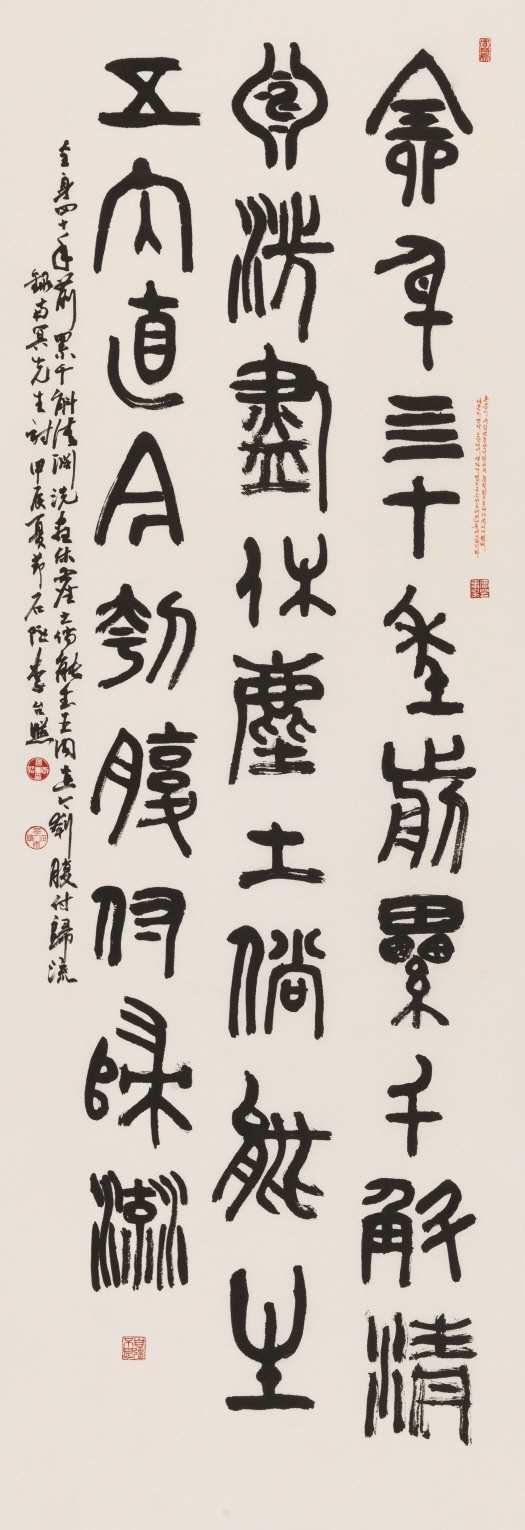 全身亖十年前累千斛清
淵洗盡休塵土倘能生
五內直今刳腹付歸流
全身四十年前累千斛清淵洗盡休塵土倘能生五内直今刳腹付歸流
錄南冥先生詩 甲辰夏節 石 李